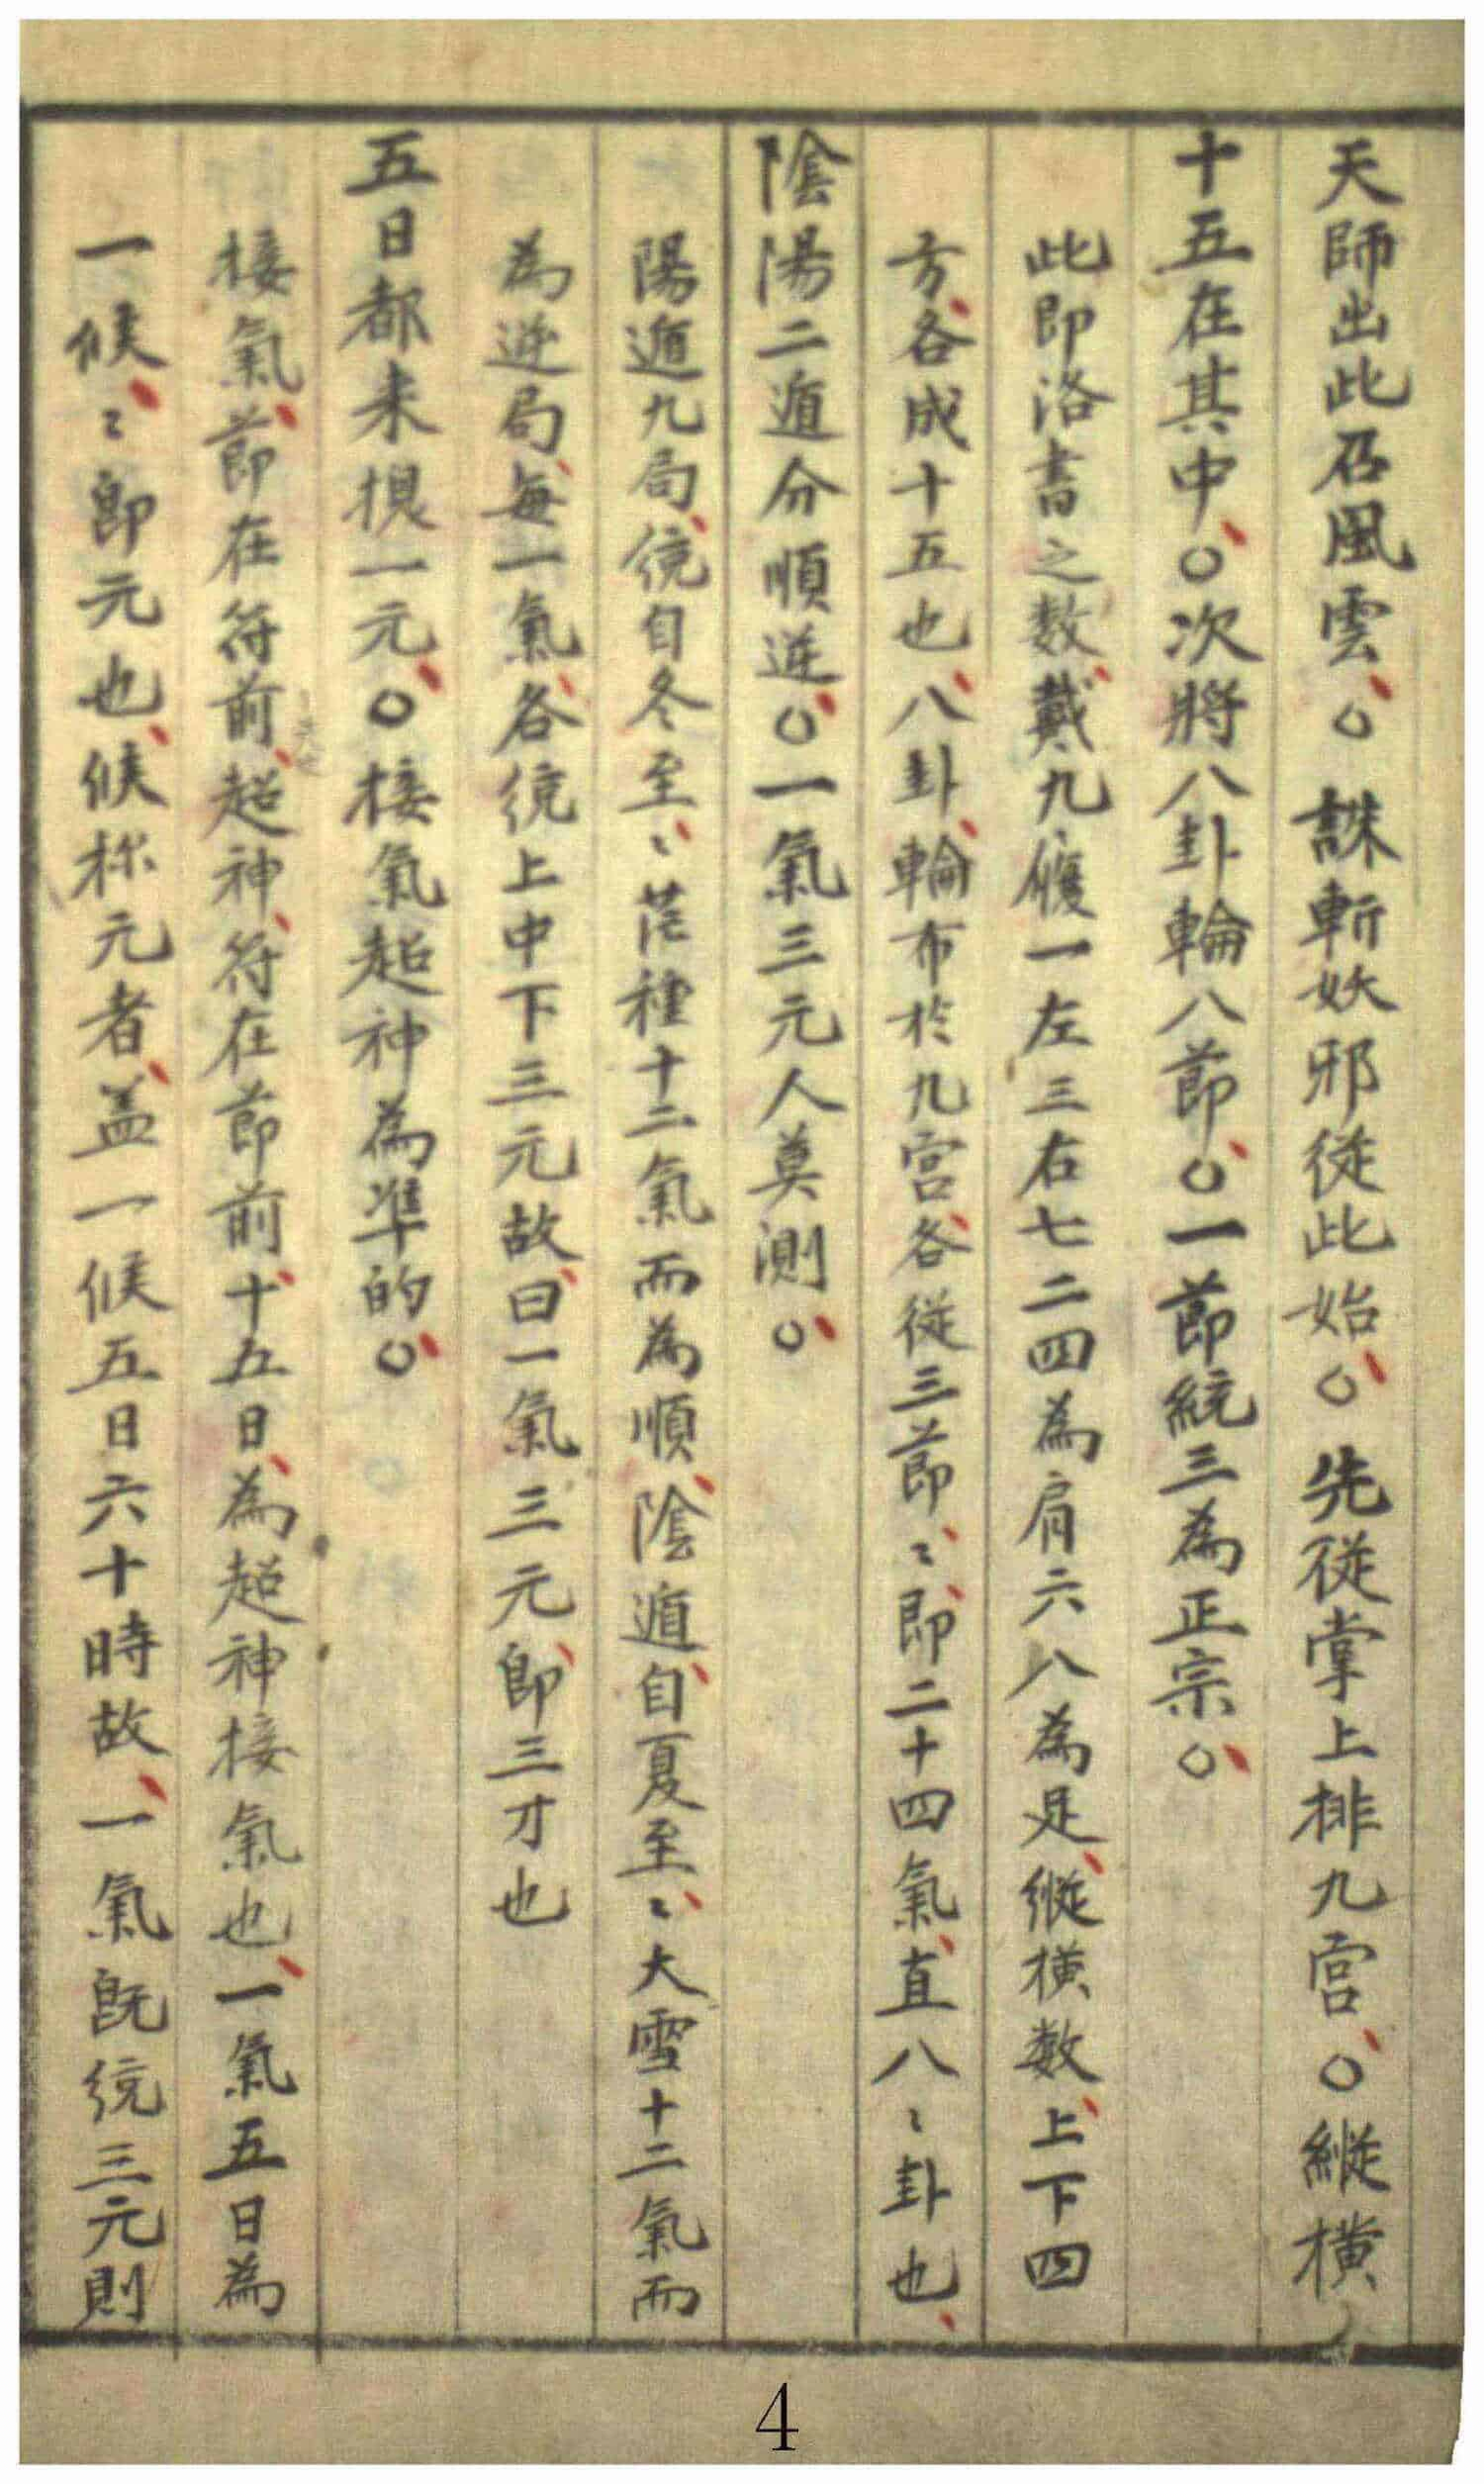 天師出此召風雲、○誅斬妖邪從此始、○先從掌上排九宮、○縱橫
十五在其中、○次將八卦輪八節、○一節統三為正宗、○
此即洛書之数、戴九履一左三右七二四為肩六八為足、縱橫数、上下四
方、各成十五也、八卦、輪布於九宮、各從三節、〻即二十四氣、直八〻卦也、
陰陽二遁分順逆、○一氣三元人莫測、○
陽遁九局、統自冬至、〻芒種十二氣而為順、陰遁、自夏至、〻大雪十二氣而
為逆局、每一氣、各統上中下三元故、曰一氣三元、即三才也
五日都来換一元、○接氣超神為準的、○
接氣、節在符前、超神、符在節前、十五日、為超神接氣也、一氣五日為
一候、〻即元也、候称元者、盖一候五日六十時故、一氣既統三元則
4